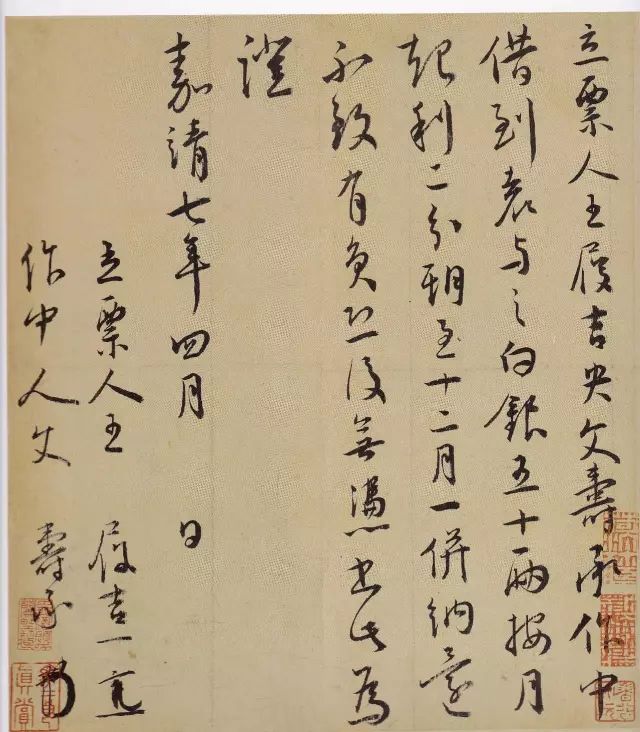 立票人王履吉央文壽承作中
借到袁与之白銀五十兩按月
起利二分期至十二月一併納還
不致有負恐後無憑書此為
證
嘉靖七年四月 日
立票人王 履吉
作中人文 壽承